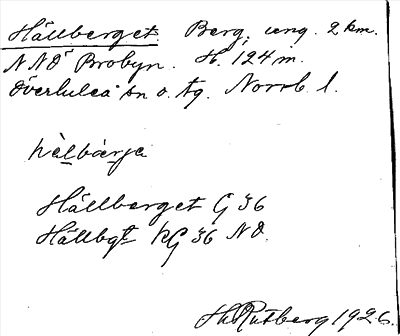 Hällberget. Berg, ung. 2 km.
NNÖ Brobyn. H. 124 m.
Överluleå sn o. tg. Norrb. l.
hälbärje
Hällberget G 36
Hällbgt KG 36 NO.
H. Rutberg 1926.